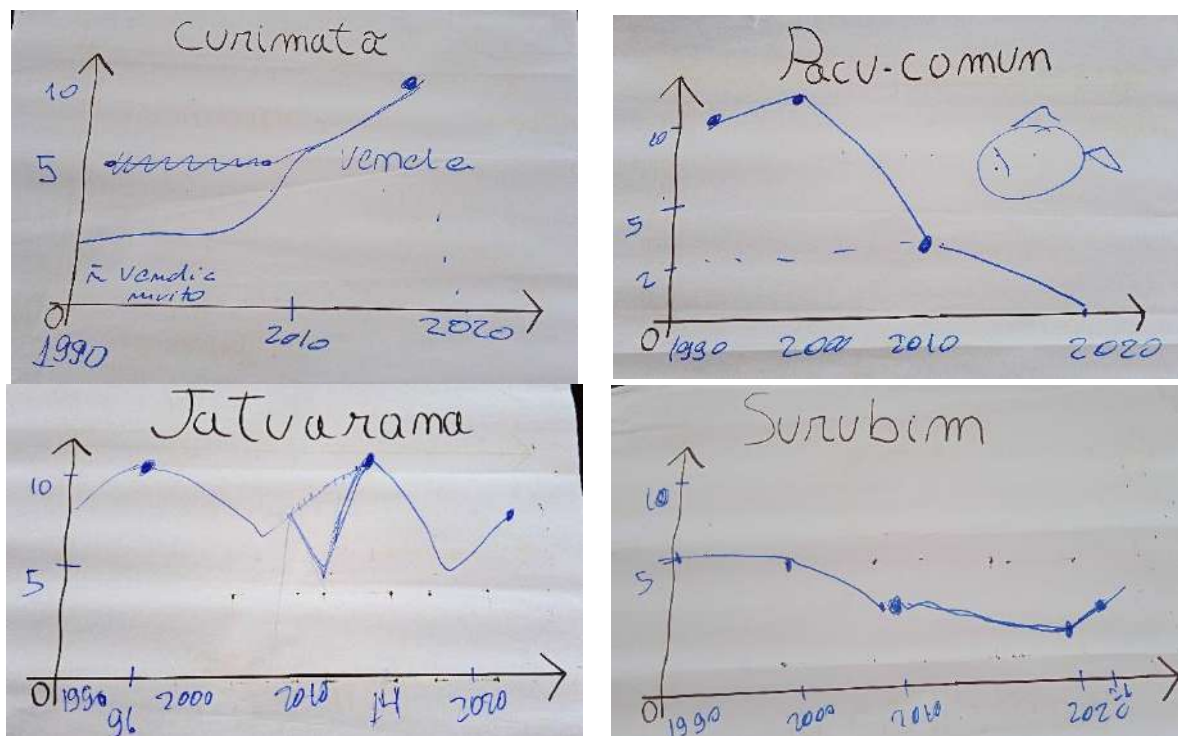 Curimata
10
5
venda
ñ vendia
muito
0
1990
2010
2020
Pacu-comun
10
5
2
0
1990
2000
2010
2020
Jatuarama
10
5
0
1990
96
2000
2010
2020
Surubim
10
5
0
1990
2000
2010
2020